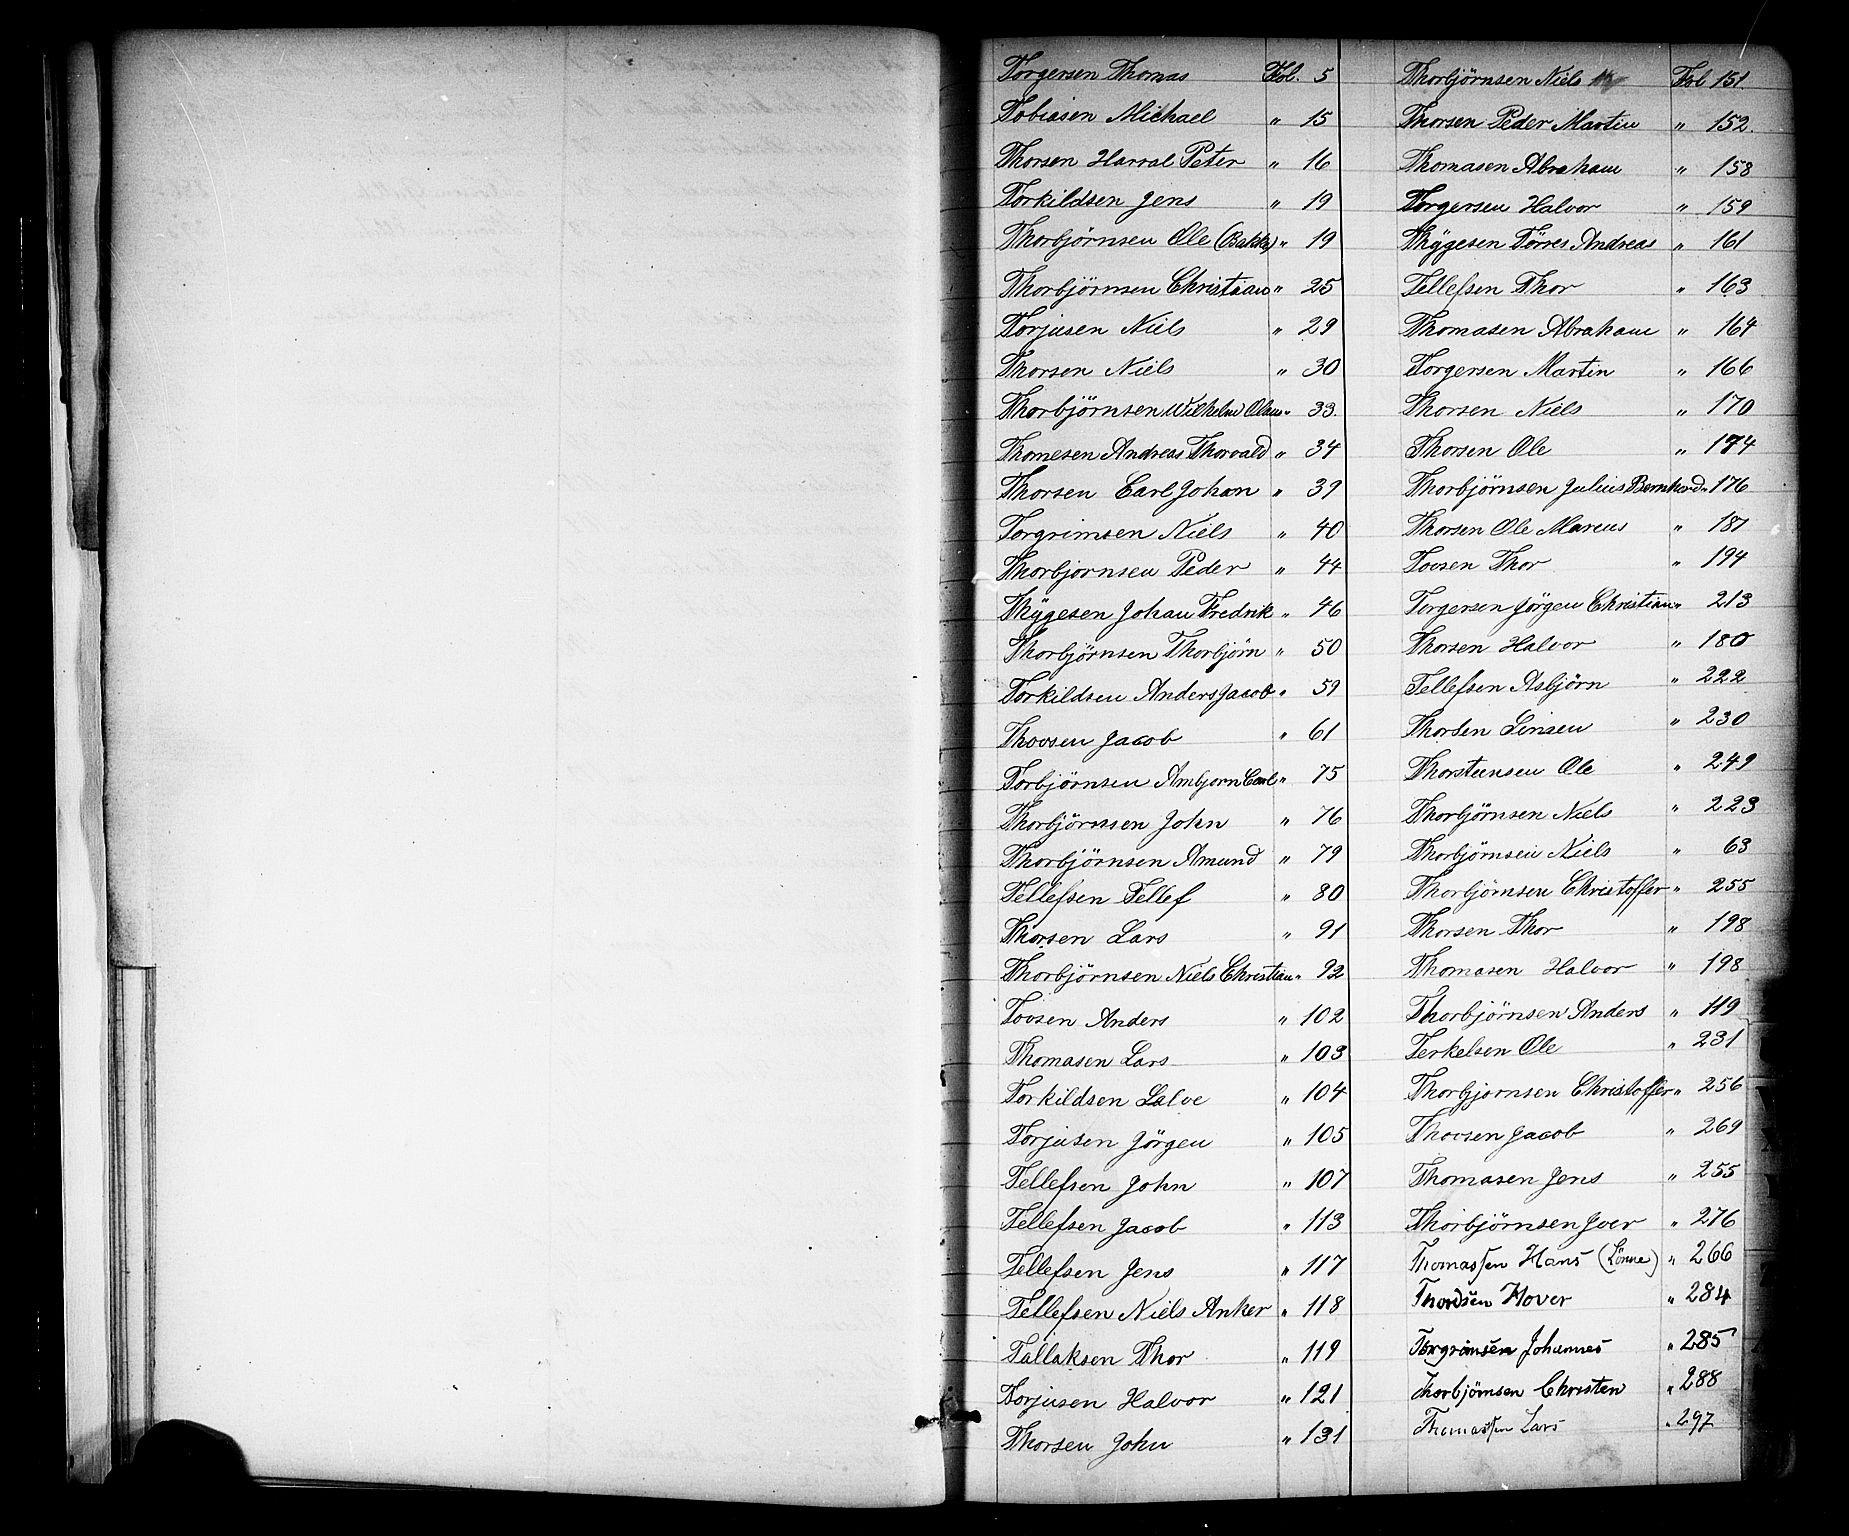 Torgersen Thomas Fol. 5
Tobiasen Michael " 15
Thorsen Harral Peter " 16
Torkildsen Jens " 19
Thorbjörnsen Ole (Bakke) " 19
Thorbjörnsen Christian " 25
Torjusen Niels " 29
Thorsen Niels " 30
Thorbjörnsen Wilhelm Olaus " 33.
Thomesen Andreas Thorvald " 34
Thorsen Carl Johan " 39
Torgrimsen Niels " 40
Thorbjornsen Peder " 44
Thÿgesen Johan Fredrik " 46
Thorbjörnsen Thorbjörn " 50
Torkildsen Anders Jacob " 59
Thovsen Jacob " 61
Torbjörnsen Arnbjorn Carl " 75
Thorbjörnsen John " 76
Thorbjörnsen Amund " 79
Tellefsen Tellef " 80
Thorsen Lars " 91
Thorbjörnsen Niels Christian " 92
Tovsen Anders " 102
Thomasen Lars " 103
Torkildsen Salve " 104
Torjusen Jörgen " 105
Tellefsen John " 107
Tellefsen Jacob " 113
Tellefsen Jens " 117
Tellefsen Niels Anker " 118
Tallaksen Thor " 119
Torjusen Halvor " 121
Thorsen John " 131
Thorbjörnsen Niels Fol 151.
Thorsen Peder Martin " 152.
Thomasen Abraham " 158
Torgersen Halvor " 159
Thÿgesen Törres Andreas " 161
Tellefsen Thor " 163
Thomasen Abraham " 164
Torgersen Martin " 166
Thorsen Niels " 170
Thorsen Ole " 174
Thorbjörnsen Julius Bernhard " 176
Thorsen Ole Marcus " 187
Tovsen Thor " 194
Torgersen Jörgen Christian " 213
Thorsen Halvor " 180
Tellefsen Asbjörn " 222
Thorsen " 230
Thorstensen Ole " 249
Thorbjörnsen Niels " 223
Thorbjörnsen Niels " 63
Thorbjörnsen Christoffer " 255
Thorsen Thor " 198
Thomasen Halvor " 198
Thorbjörnsen Anders " 119
Terkelsen Ole " 231
Thorbjornsen Christoffer " 256
Thovsen Jacob " 269
Thomasen Jens " 255
Thorbjörnsen Iver " 276
Thomassen Hans (Lönne) " 266
Thordsen Hover " 284
Torgrimsen Johannes " 285
Thorbjörnsen Christen " 288
Thomassen Lars " 297